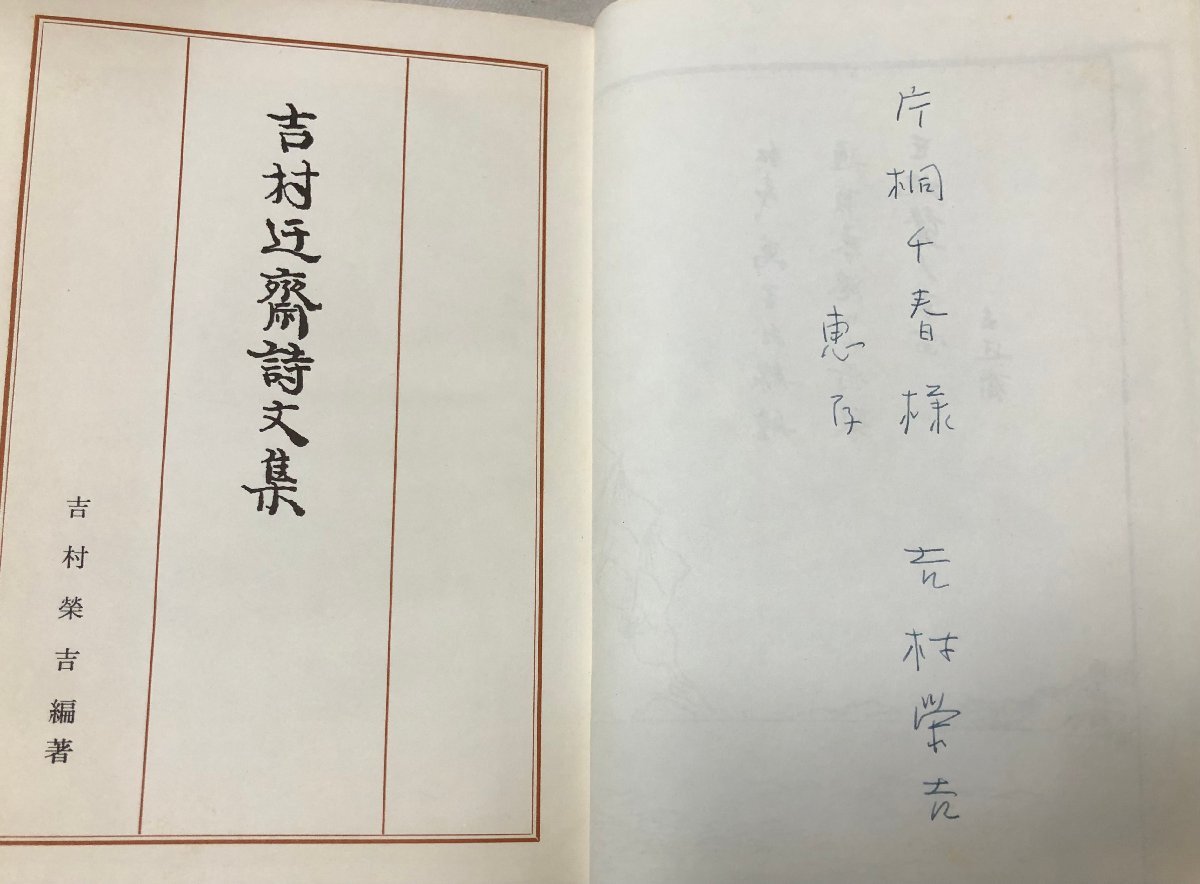 片桐千春様
惠存
吉村榮吉
吉村迂齋詩文集
吉村榮吉編著